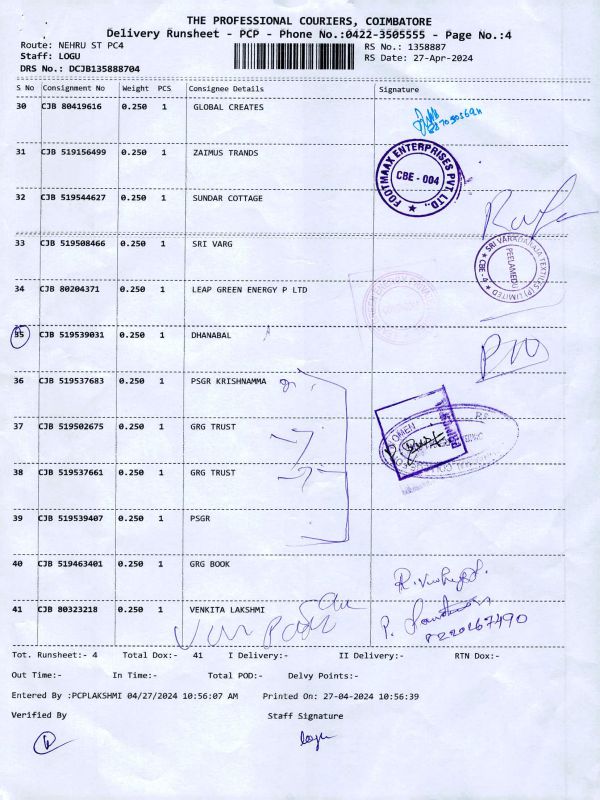 THE PROFESSIONAL COURIERS, COIMBATORE
Delivery Runsheet - PCP - Phone No.:0422-3505555 - Page No.:4
Route: NEHRU ST PC4 RS No.: 1358887
Staff: LOGU RS Date: 27-Apr-2024
DRS No.: DCJB135888704
S No Consignment No Weight PCS Consignee Details Signature
30 CJB 80419616 0.250 1 GLOBAL CREATES
31 CJB 519156499 0.250 1 ZAIMUS TRANDS
FOOTMAAX ENTERPRISES PVT. LTD.,
CBE - 004
32 CJB 519544627 0.250 1 SUNDAR COTTAGE
33 CJB 519508466 0.250 1 SRI VARG
SRI VARADARAJA TEXTILES (P) LIMITED
PEELAMEDU
CBE - 4
34 CJB 80204371 1 LEAP GREEN ENERGY P LTD
0.250
35 CJB 519539031 0.250 1 DHANABAL
36 CJB 519537683 0.250 1 PSGR KRISHNAMMA
37 CJB 519502675 0.250 1 GRG TRUST
38 CJB 519537661 0.250 1 GRG TRUST
39 CJB 519539407 0.250 1 PSGR
40 CJB 519463401 0.250 1 GRG BOOK
41 CJB 80323218 0.250 1 VENKITA LAKSHMI
Tot. Runsheet:- 4 Total Dox:- 41 I Delivery:- II Delivery:- RTN Dox:-
Out Time:- In Time:- Total POD:- Delvy Points:-
Entered By :PCPLAKSHMI 04/27/2024 10:56:07 AM Printed On: 27-04-2024 10:56:39
Verified By Staff Signature
logu